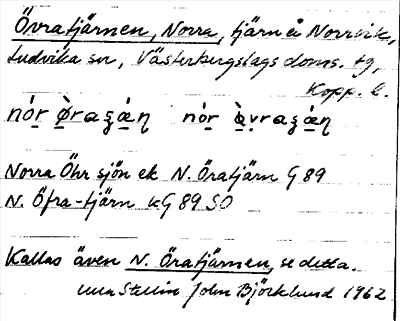 Övratjärnen, Norra, tjärn å Norrvik,
Ludvika sn, Västerbergslags doms. tg,
Kopp. l.
nór ø̀raʒán nór àvraʒán
Norra Öhr sjön ek N. Öratjärn G 89
N. Öfra-tjärn kG 89 SO
Kallas även N. Öratjärnen, se detta.
John Björklund 1962